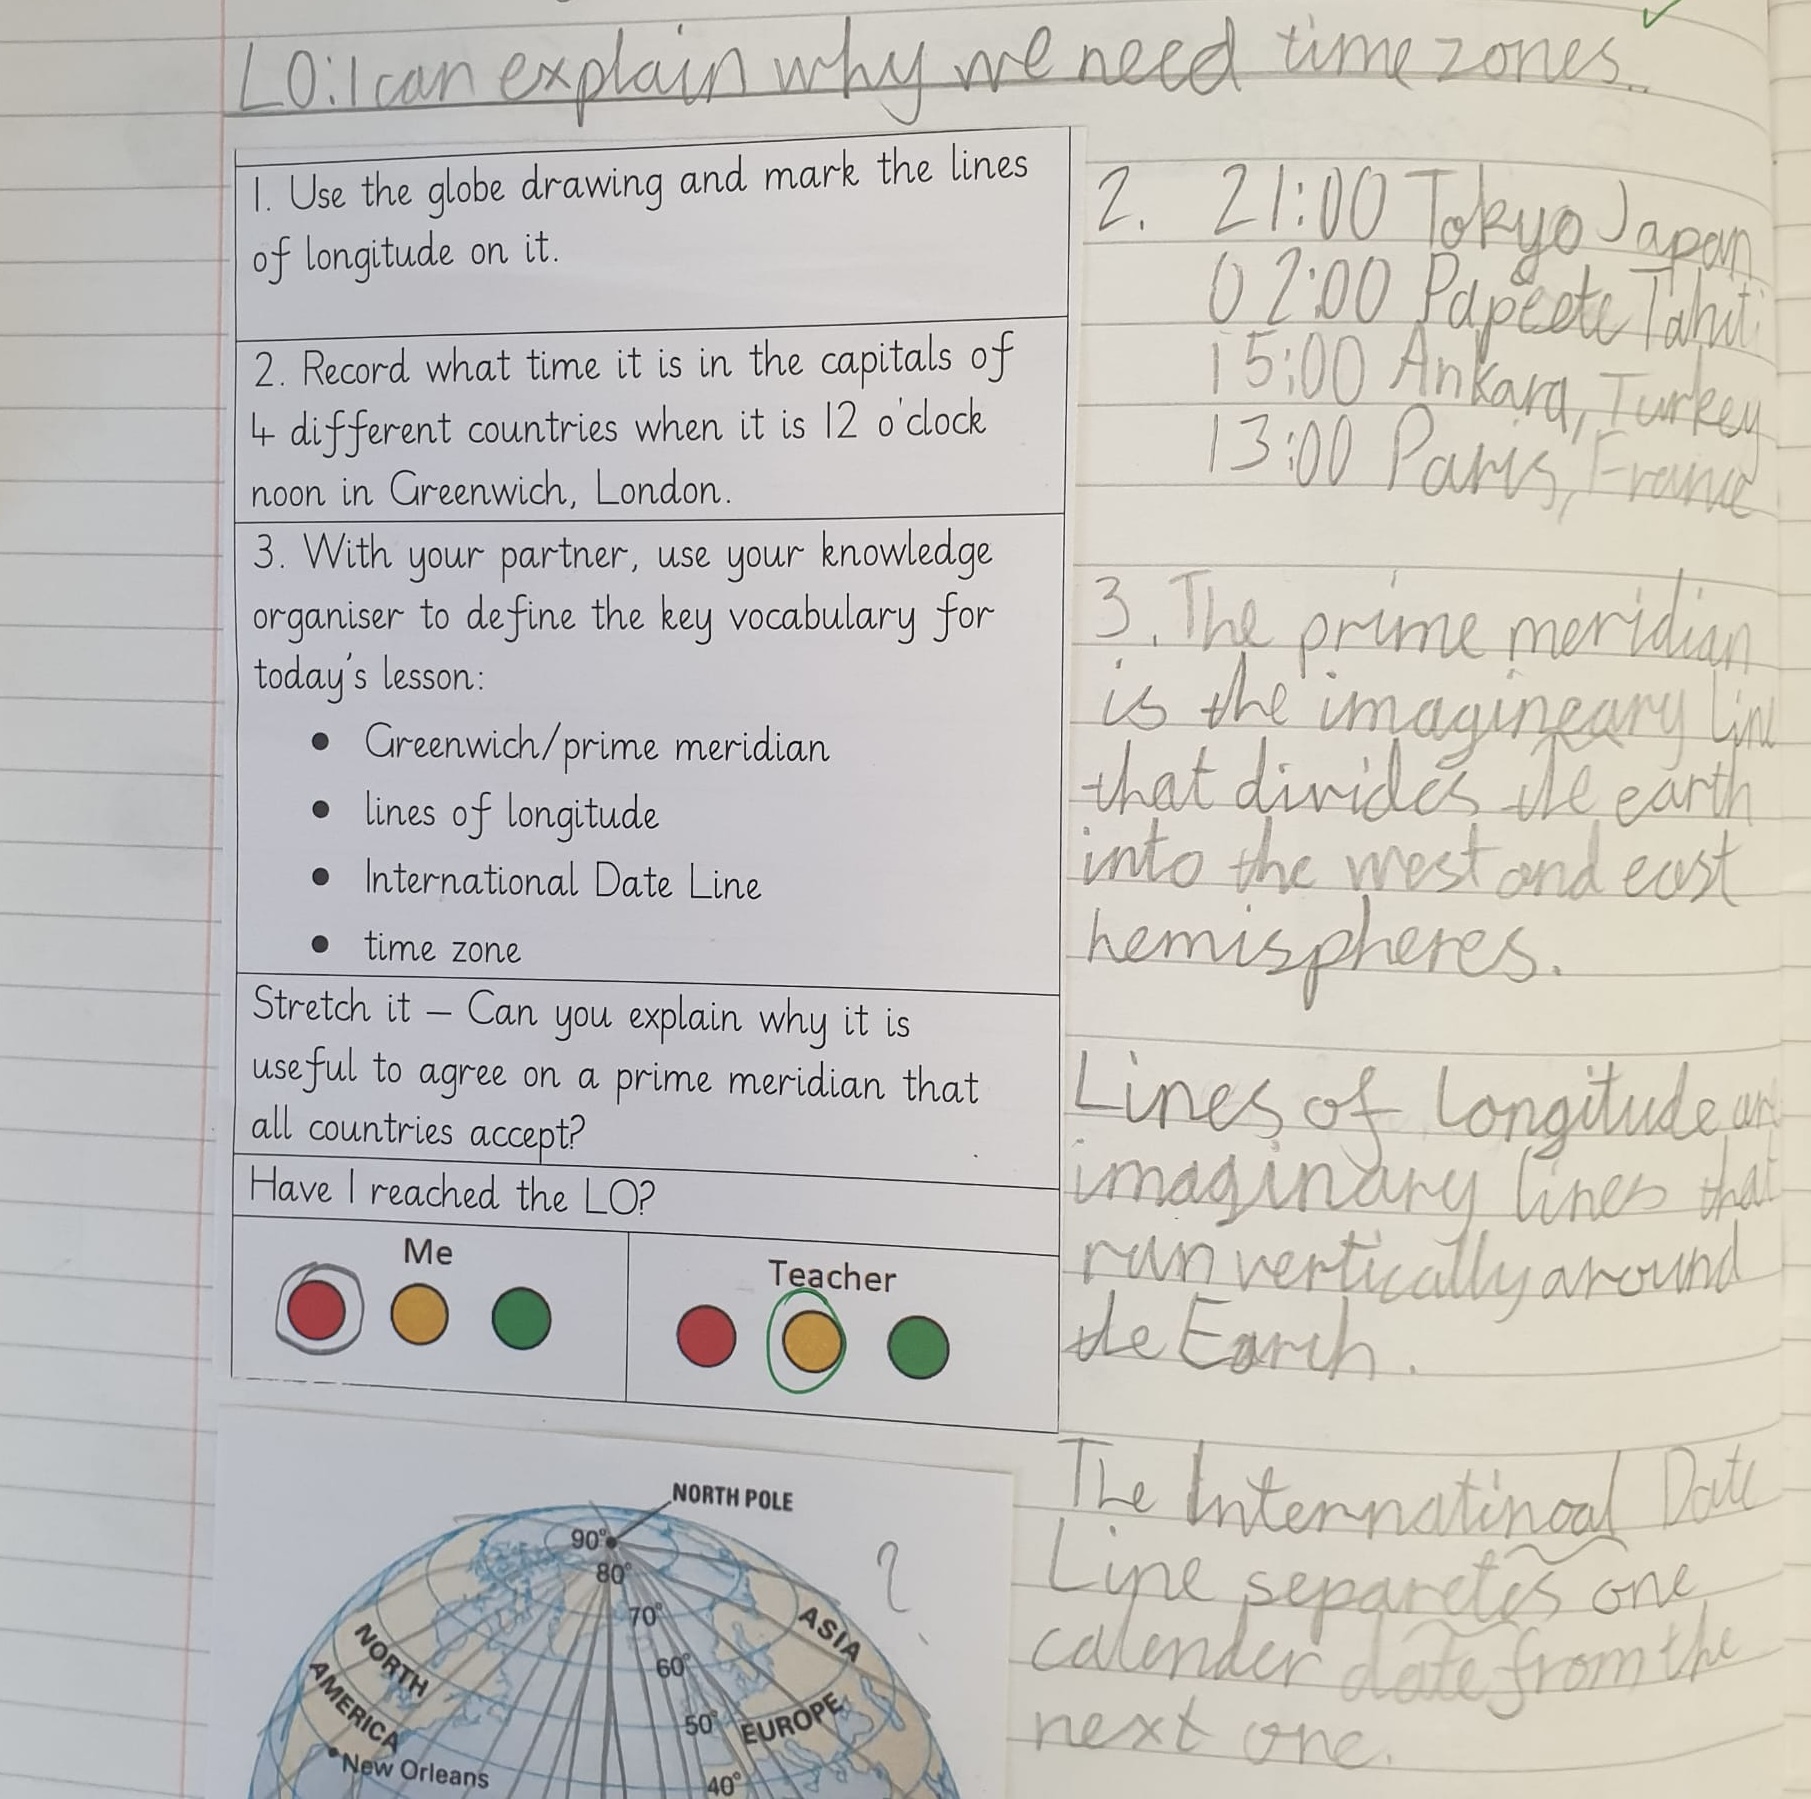 LO: I can explain why we need time zones.
1. Use the globe drawing and mark the lines
of longitude on it.
2. Record what time it is in the capitals of
4 different countries when it is 12 o'clock
noon in Greenwich, London.
3. With your partner, use your knowledge
organiser to define the key vocabulary for
today's lesson:
• Greenwich/prime meridian
• lines of longitude
• International Date Line
• time zone
Stretch it – Can you explain why it is
useful to agree on a prime meridian that
all countries accept?
Have I reached the LO?
Me
Teacher
NORTH POLE
90°
80°
70°
60°
50°
40°
NORTH
AMERICA
New Orleans
EUROPE
ASIA
?
2. 21:00 Tokyo Japan
02:00 Papeete Tahiti
15:00 Ankara, Turkey
13:00 Paris, France
3. The prime meridian
is the imagineary line
that divides the earth
into the west and east
hemispheres.
Lines of longitude are
imaginary lines that
run vertically around
the Earth.
The Internatinoal Date
Line separetes one
calender date from the
next one.